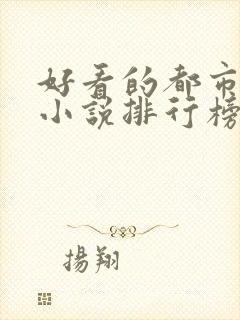 好看的都市
小說排行榜
揚翔